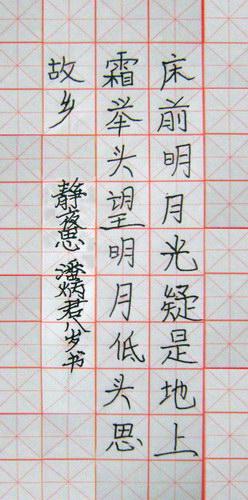 床前明月光疑是地上
霜举头望明月低头思
故乡
静夜思 潘炳君八岁书